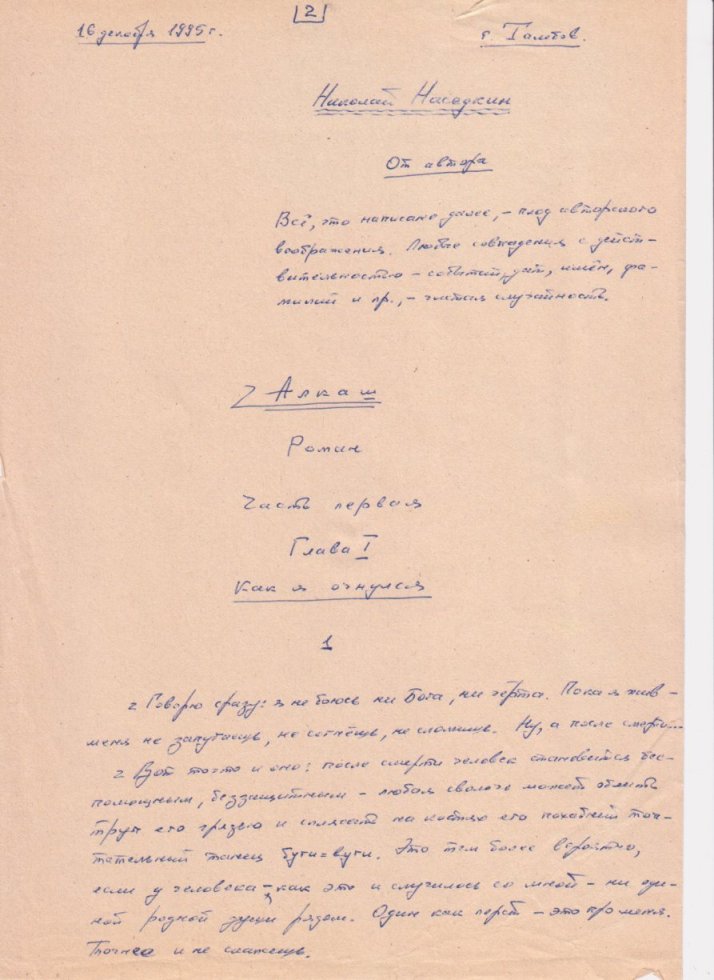 2
16 декабря 1995 г. г. Тамбов.
Николай Наседкин
От автора
Всё, что написано далее, – плод авторского
воображения. Любые совпадения с дейст-
вительностью – событий, дат, имён, фа-
милий и пр., – чистая случайность.
Алкаш
Роман
Часть первая
Глава I
Как я очнулся
1
Говорю сразу: я не боюсь ни Бога, ни чёрта. Пока я жив –
меня не запугаешь, не согнёшь, не сломишь. Ну, а после смерти...
Вот то-то и оно: после смерти человек становится бес-
помощным, беззащитным – любая сволочь может облить
труп его грязью и сплясать на костях его похабный
танец буги-вуги. Это тем более вероятно,
если у человека – как это и случилось со мной – ни од-
ной родной души рядом. Один как перст – это про меня.
Точнее и не скажешь.